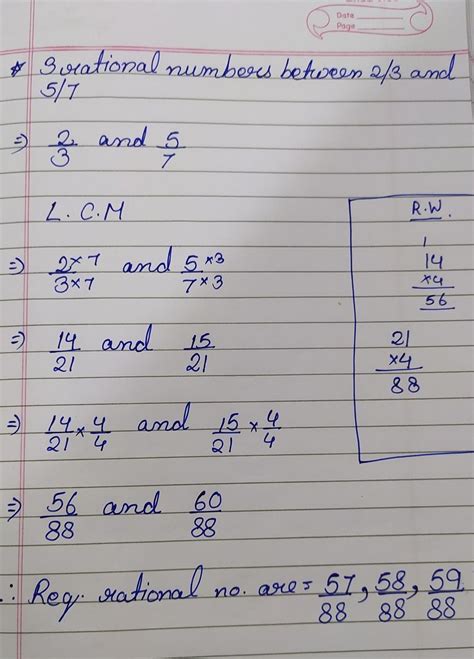 Date
Page
* 3 rational numbers between 2/3 and
5/7
⇒ 2/3 and 5/7
L.C.M
⇒ 2×7/3×7 and 5×3/7×3
⇒ 14/21 and 15/21
⇒ 14/21 × 4/4 and 15/21 × 4/4
⇒ 56/88 and 60/88
∴ Req. rational no. are = 57/88, 58/88, 59/88
R.W.
1
14
×4
56
21
×4
88